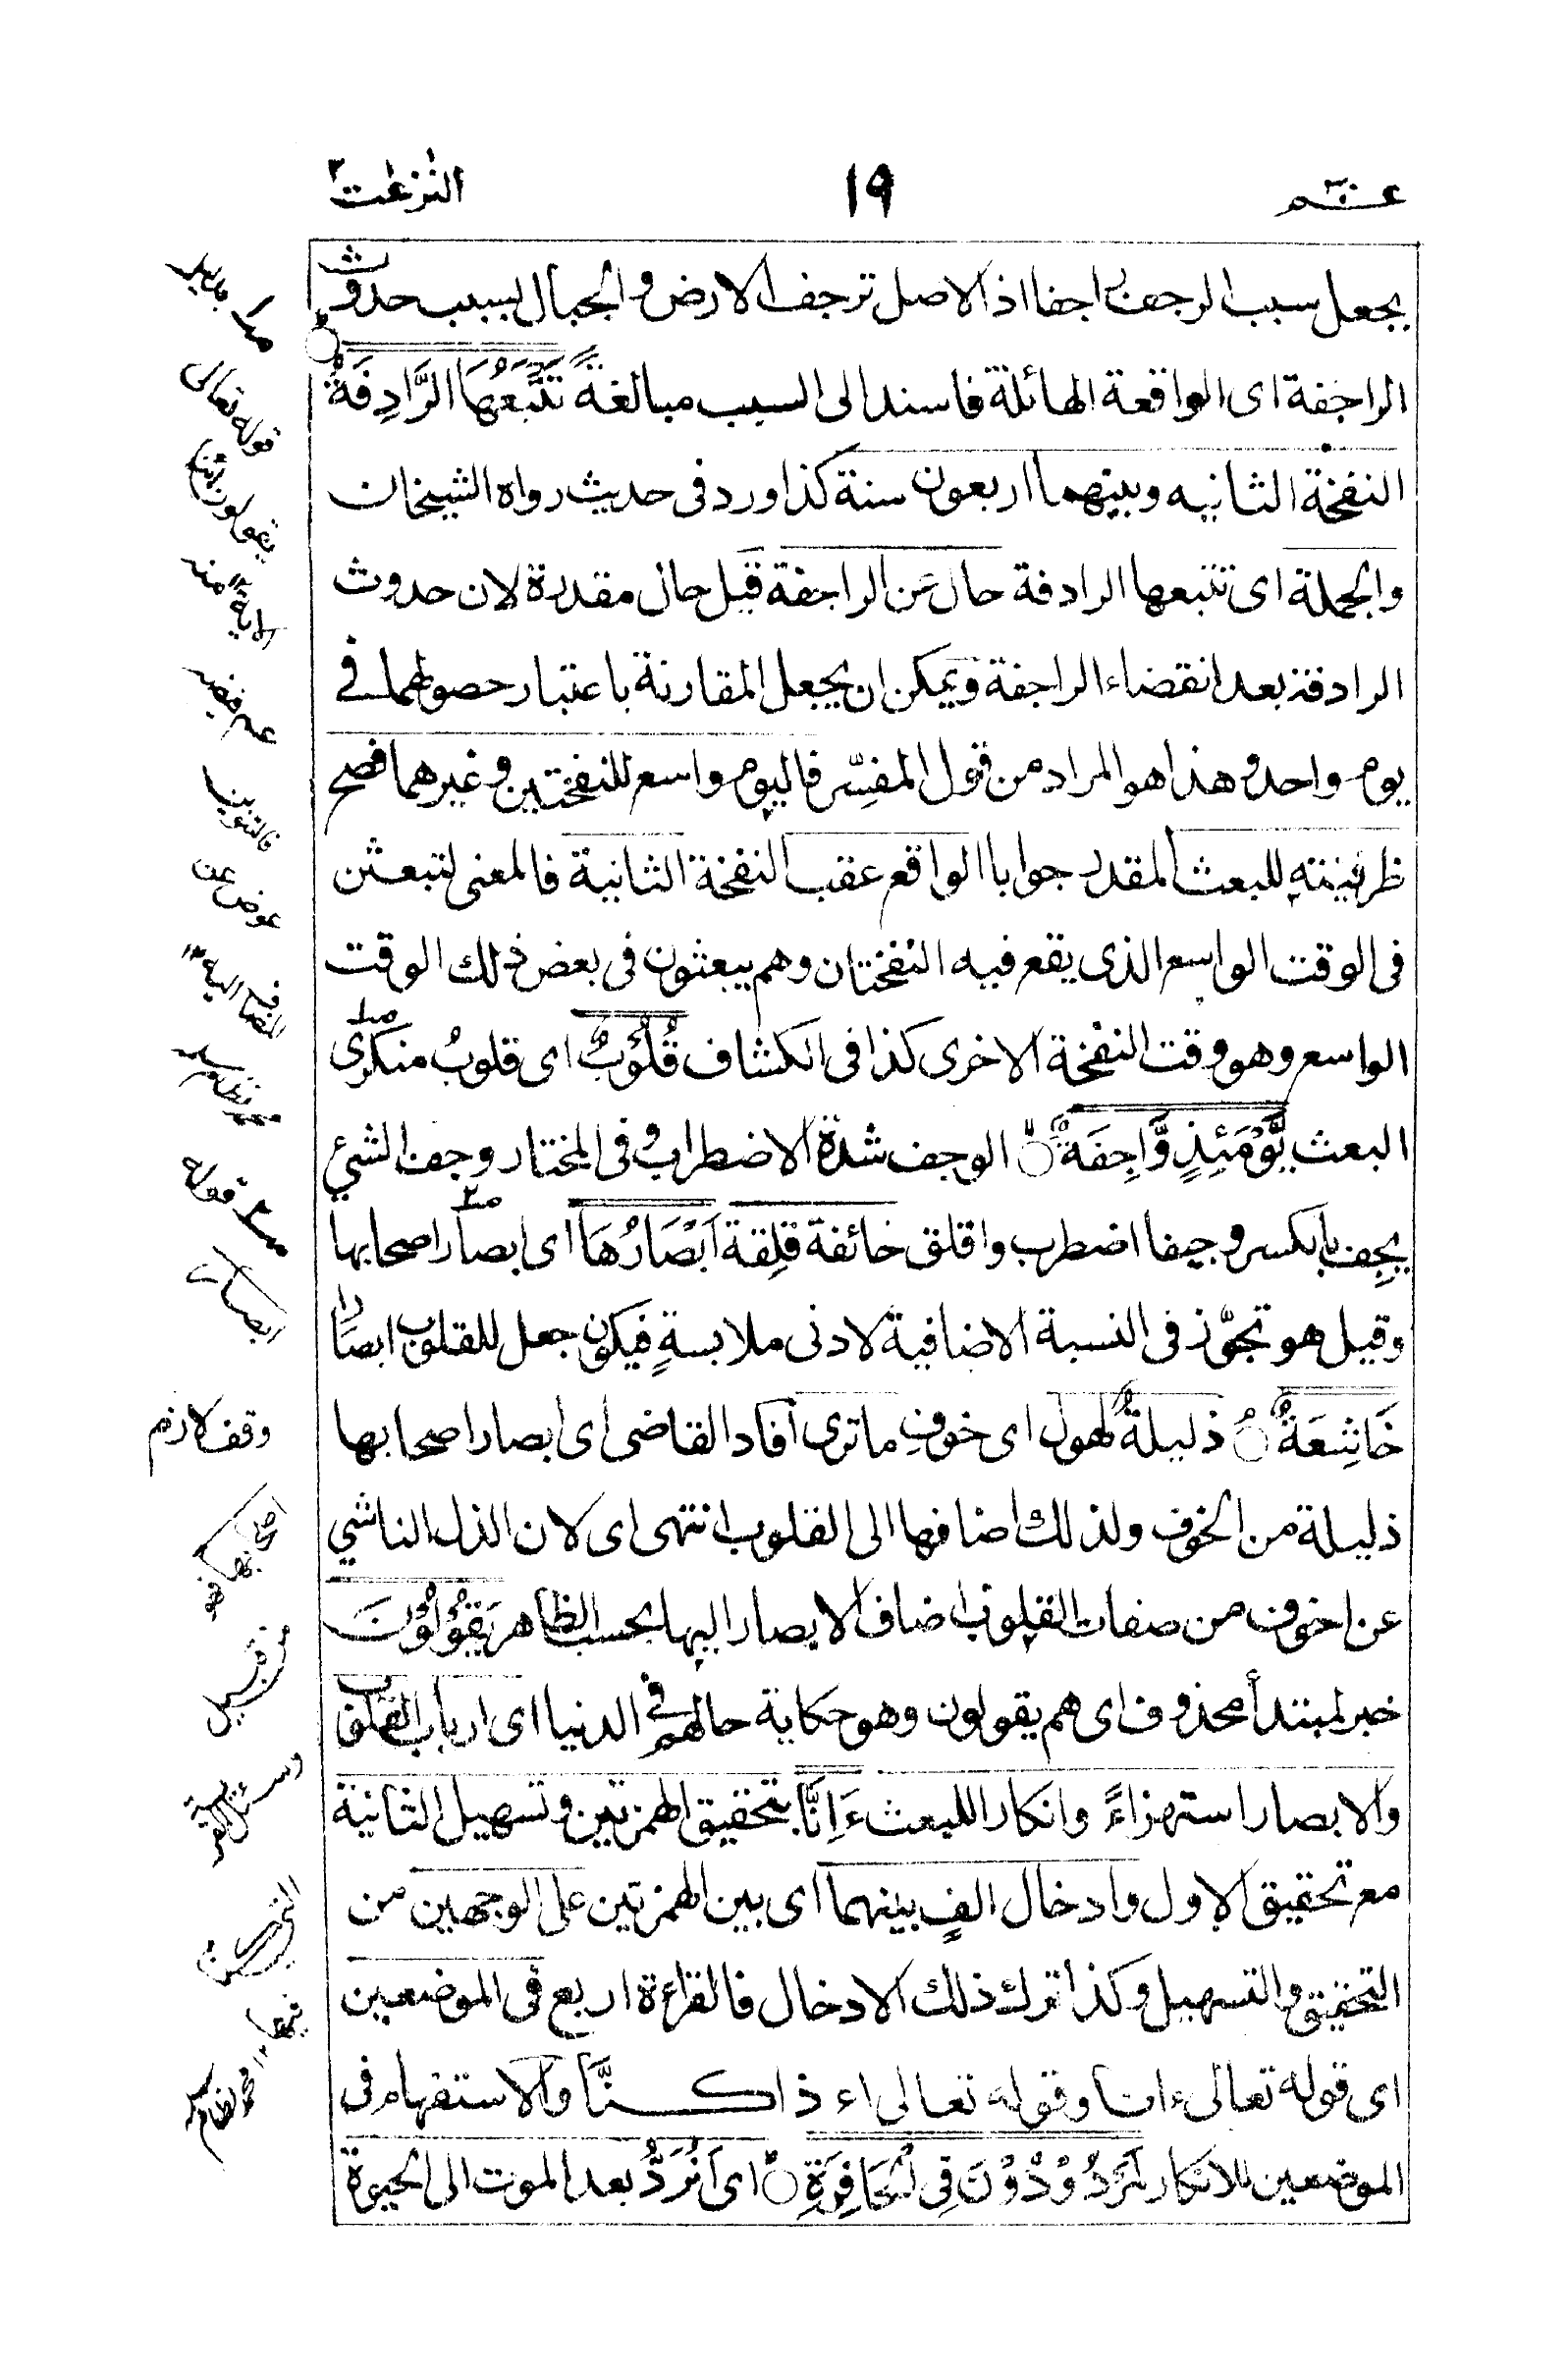 عـــم ٣٠
١٩
النزعت
يجعل سبب الرجف راجفا اذ الاصل ترجف الارض والجبال بسبب حدوث
الراجفة اى الواقعة الهائلة فاسند الى السبب مبالغة تَتْبَعُهَا الرَّادِفَةُ
النفخة الثانيه وبينهما اربعون سنة كذا ورد فى حديث رواه الشيخان
والجملة اى تتبعها الرادفة حال عن الراجفة قيل حال مقدرة لان حدوث
الرادفة بعد انقضاء الراجفة ويمكن ان يجعل المقارنة باعتبار حصولهما فى
يوم واحد وهذا هو المراد من قول المفسّر فاليوم واسع للنفختين وغيرهما فصح
ظرفيته للبعث المقدر جوابا الواقع عقب النفخة الثانية فالمعنى لتبعثن
فى الوقت الواسع الذى يقع فيه النفختان وهم يبعثون فى بعض ذلك الوقت
الواسع وهو وقت النفخة الاخرى كذا فى الكشاف قُلُوْبٌ اى قلوبُ منكرى
البعث يَّوْمَئِذٍ وَّاجِفَةٌ الوجف شدة الاضطراب وفى المختار وجف الشئ
يجِف بالكسر وجيفا اضطرب واقلق خائفة قلِقة اَبْصَارُهَا اى ابصار اصحابها
وقيل هو تجوّز فى النسبة الاضافية لادنى ملابسةٍ فيكون جعل للقلوب ابصارا
خَاشِعَةٌ ذليلةٌ لهول اى خوفِ ما ترى افاد القاضى اى ابصار اصحابها
ذليلة من الخوف ولذلك اضافها الى القلوب انتهى اى لان الذل الناشى
عن اخوف من صفات القلوب اضاف الابصار اليها بحسب الظاهر يَقُوْلُوْنَ
خبر لمبتدأ محذوف اى هم يقولون وهو حكاية حالهم فى الدنيا اى ارباب القلوب
والابصار استهزاءً وانكارا للبعث ءَاِنَّا بتحقيق الهمزتين وتسهيل الثانية
مع تحقيق الاول وادخال الفٍ بينهما اى بين الهمزتين على الوجهين من
التحقيق والتسهيل وكذا ترك ذلك الادخال فالقراءة اربع فى الموضعين
اى قوله تعالى ءانا وقوله تعالى اءذا كــنَّا والاستفهام فى
الموضعين للانكار لَمَرْدُوْدُوْنَ فِى الْحَافِرَةِ اى اَنُرَدُّ بعد الموت الى الحيوة
قوله تعالى
يقولون ائنا
فالتنوين
عوض عن
المضاف اليه
قوله
ابصار
وقف لازم
اصحابها
من قبيل
القرية
فيها ١٢